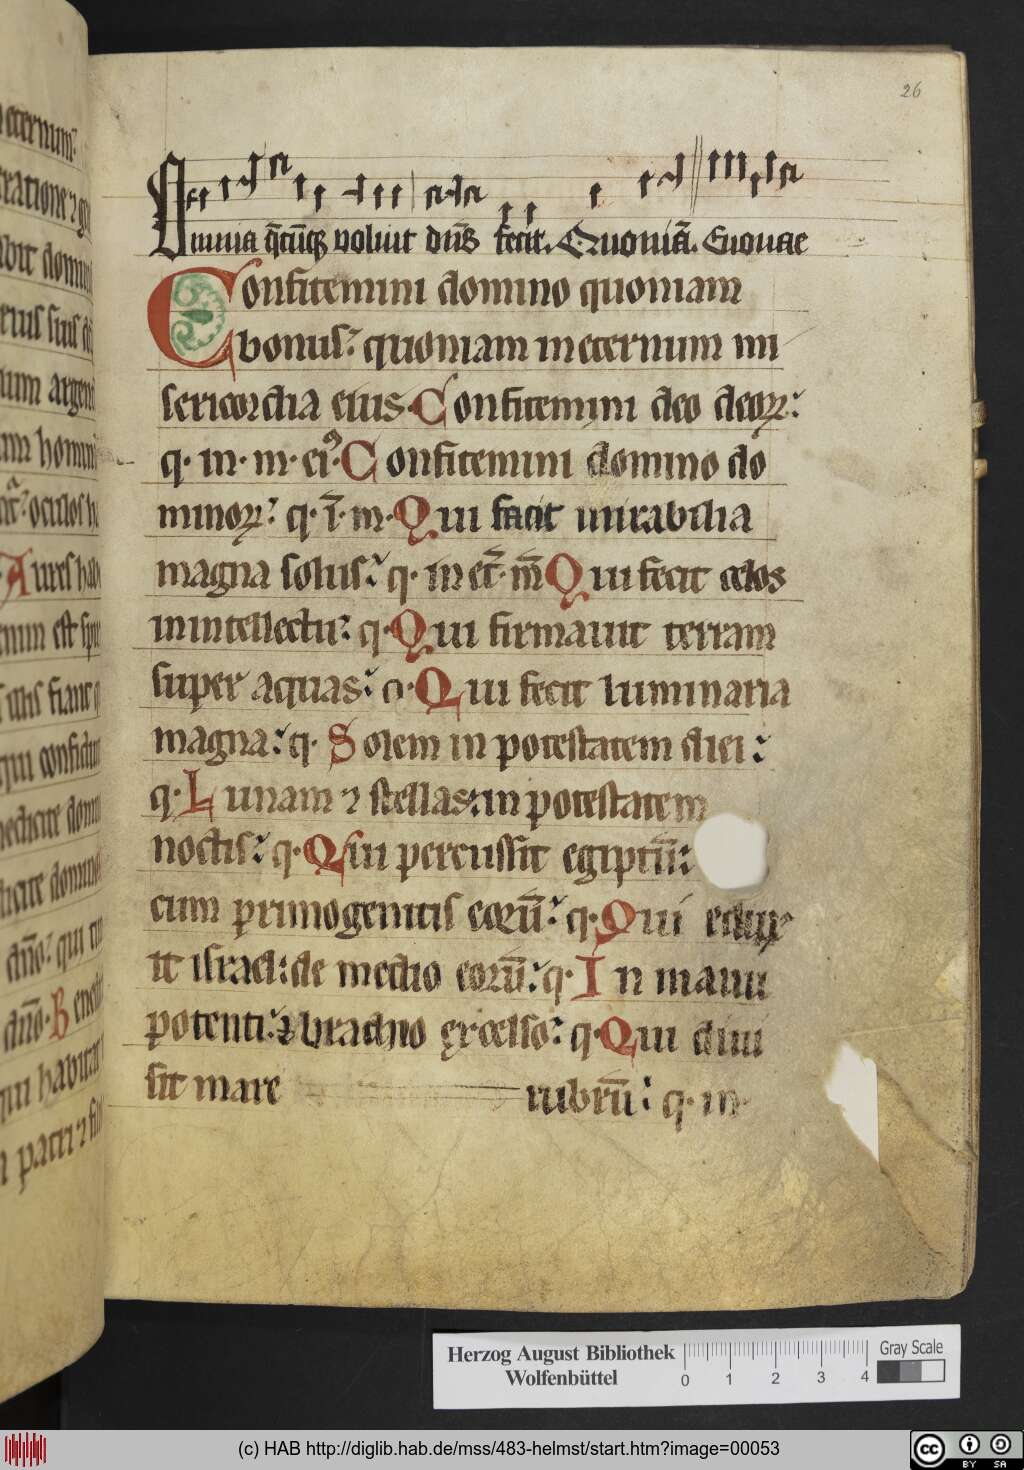 26
Omnia q̄cūq; voluit dn̄s fecit. Quoniā. Euouae
Confitemini domino quoniam
bonus: quoniam in eternum mi
sericordia eius. Confitemini deo deoꝝ:
q. in. m. eiꝰ. Confitemini domino do
minoꝝ: q. ī. m. Qui facit mirabilia
magna solus: q. in et̄. m̄ Qui fecit celos
in intellectu: q. Qui firmauit terram
super aquas: q. Qui fecit luminaria
magna: q. Solem in potestatem diei:
q. Lunam ⁊ stellas: in potestatem
noctis: q. Qui percussit egiptū:
cum primogenitis eorū: q. Qui edux
it israel: de medio eorū: q. In manu
potenti: ⁊ brachio excelso: q. Qui diui
sit mare rubrū: q. in.
eternum:
domini
argent
homini
oculos
Aures
est
fiant
qui
domino
dn̄o: qui
dn̄o. Bened
qui habitat
patri ⁊ fil
Herzog August Bibliothek
Wolfenbüttel
0 1 2 3 4
Gray Scale
(c) HAB http://diglib.hab.de/mss/483-helmst/start.htm?image=00053
cc BY SA